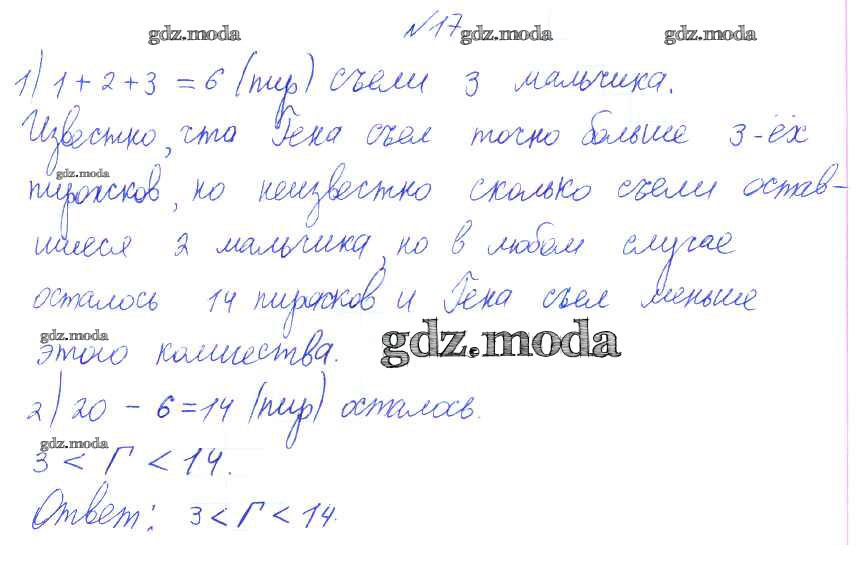 gdz.moda gdz.moda gdz.moda
№17
1) 1 + 2 + 3 = 6 (пир) съели 3 мальчика.
Известно, что Гена съел точно больше 3-ёх
gdz.moda
пирожков, но неизвестно сколько съели остав-
шиеся 2 мальчика, но в любом случае
осталось 14 пирожков и Гена съел меньше
gdz.moda
этого количества.
gdz.moda
2) 20 - 6 = 14 (пир) осталось.
gdz.moda
3 < Г < 14.
Ответ: 3 < Г < 14.